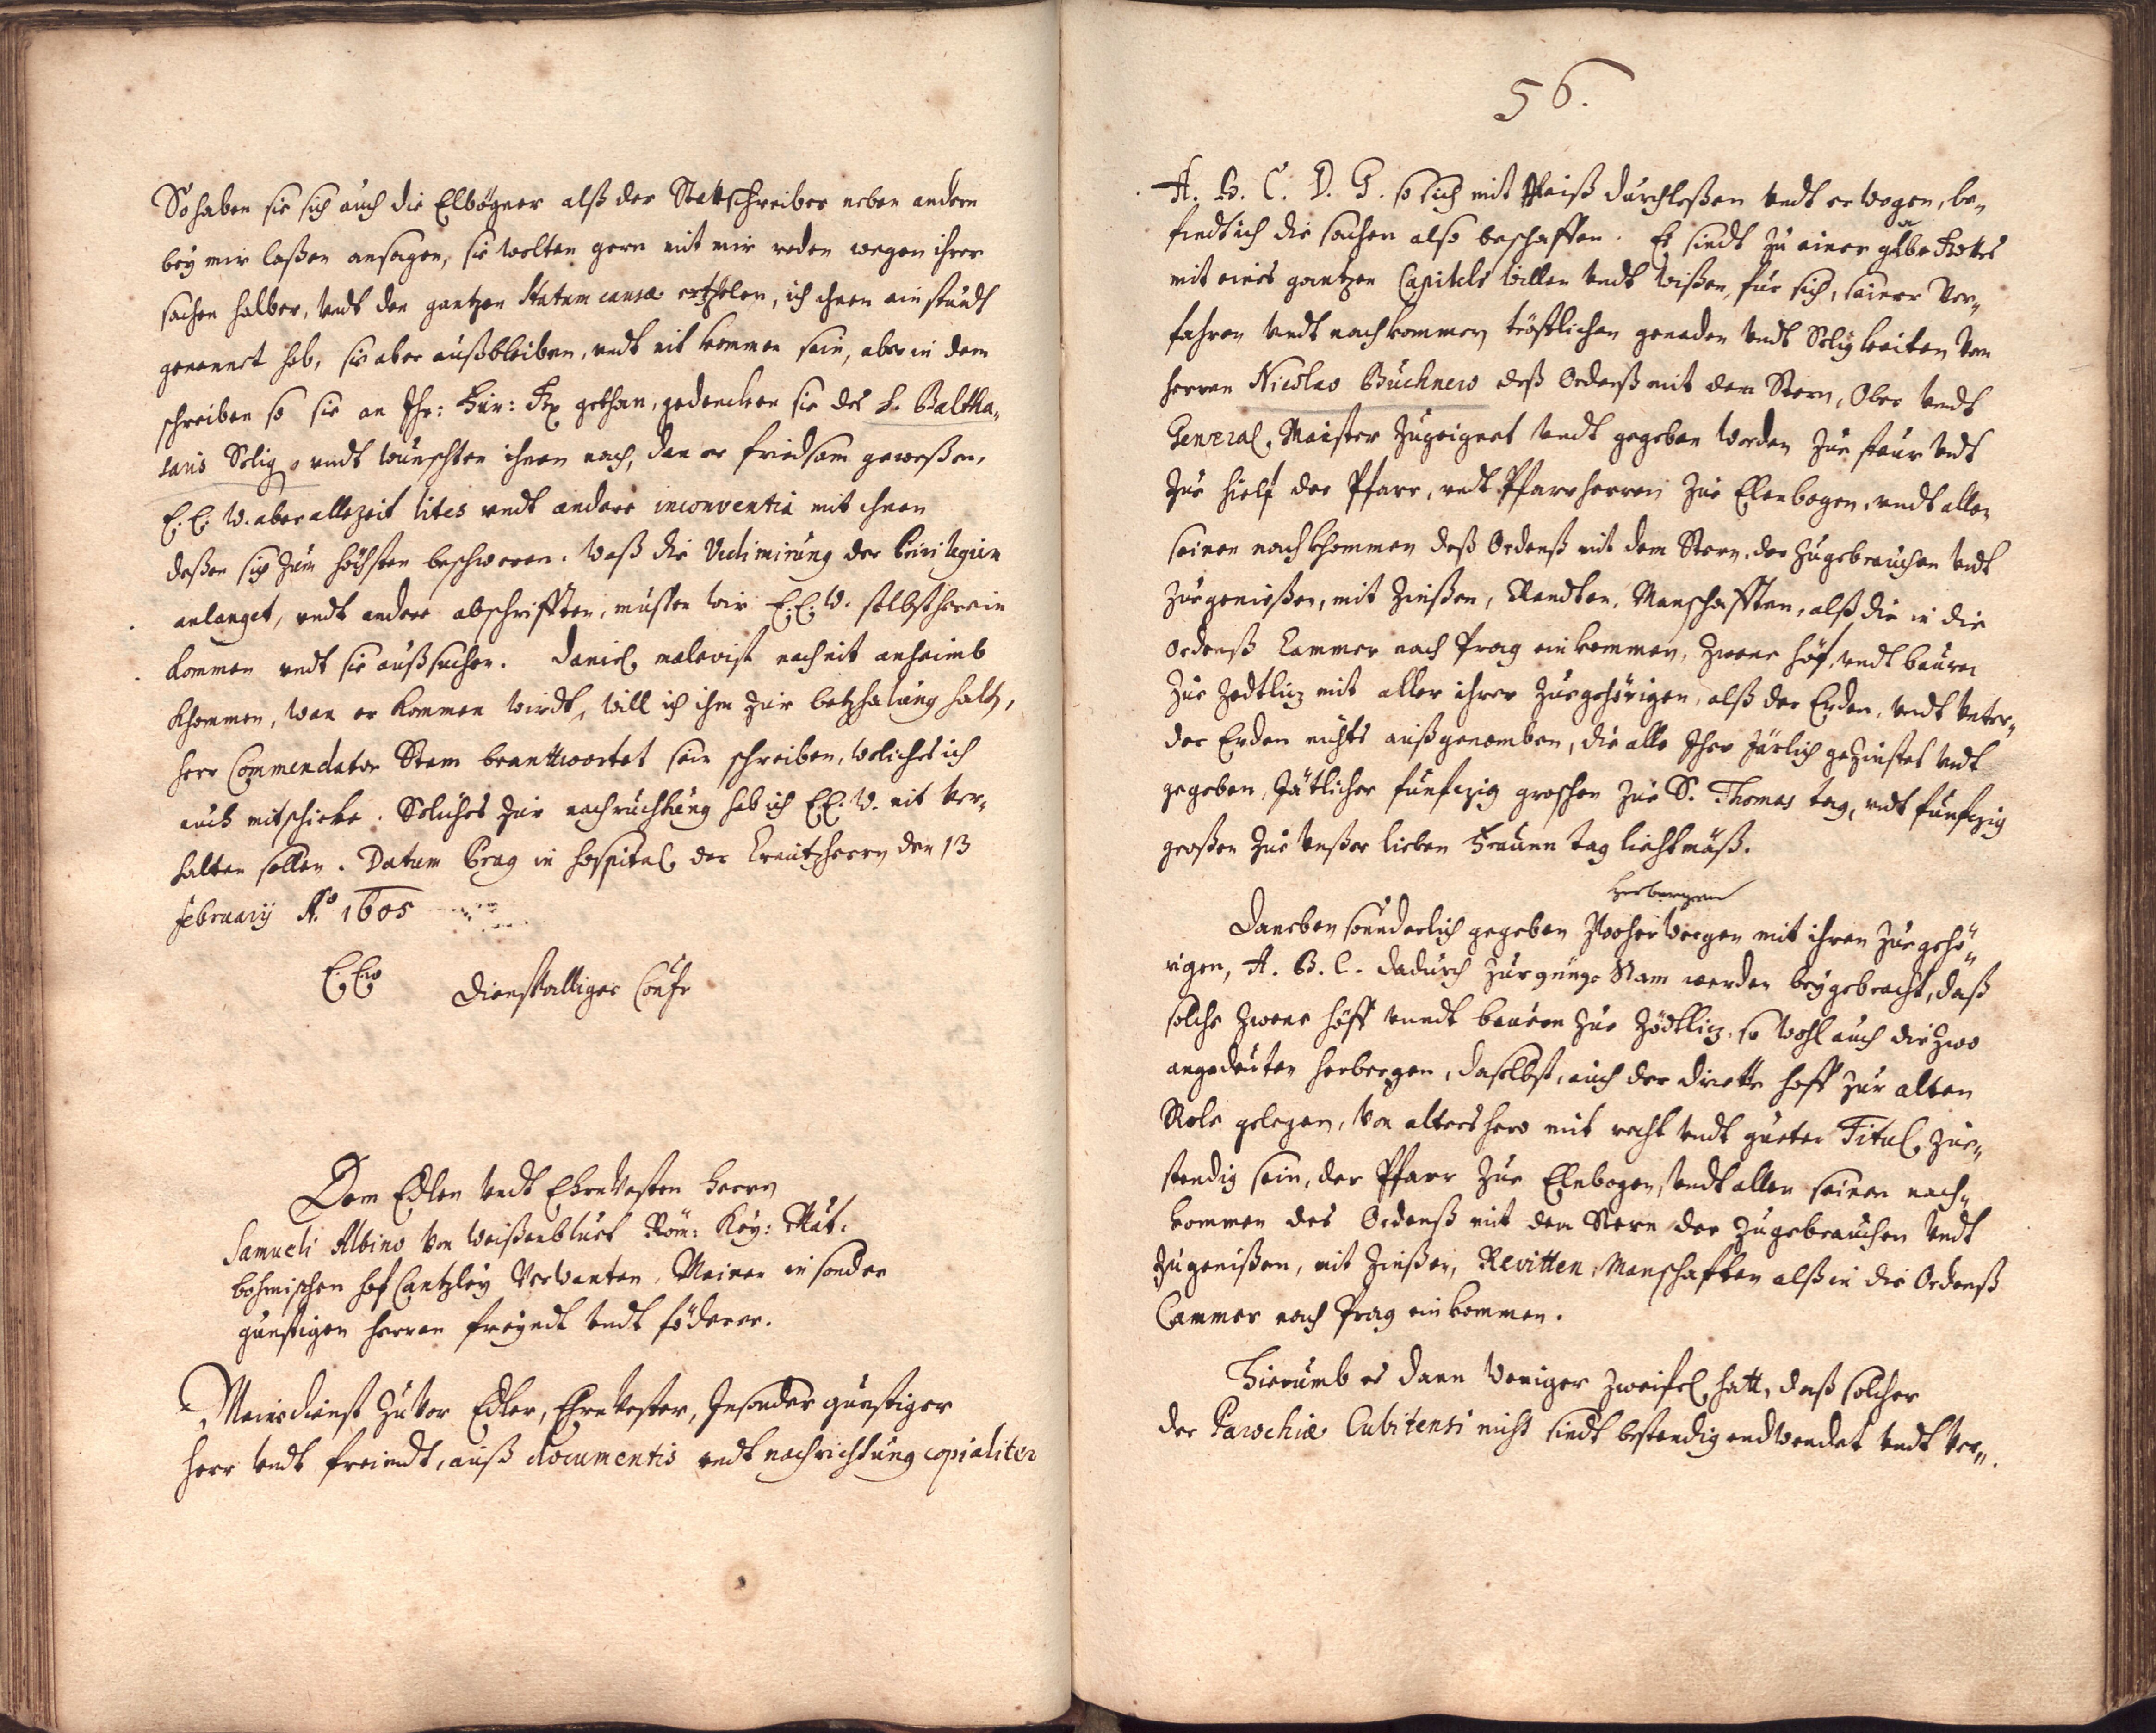 So haben sie sich auch die Elbögner alß der Stattschreiber neben andern
bey mir laßen ansagen, sie wolten gern mit mir reden wegen ihrer
sachen halber, undt den gantzen statum causæ erzehlen, ich ihnen ein stundt
genennet hab, sie aber außbleiben, undt nit kommen sein, aber in dem
schreiben so sie an Ihr: Für: gethan, gedencken sie des H. Baltha„
saris Selig, undt wünschten ihnen nach, dan er friedsam geweßen,
E. E. W. aber allezeit lites undt andere inconventia mit ihnen
deßen sich zum höchsten beschweren. Waß die Vidimirung der Privilegien
anlanget, undt andere abschrifften, müssen wir E. E. W. selbst herein
kommen undt sie außsuchen. Daniel nach nit anheimb
khommen, wan er kommen wirdt, will ich ihm zur betzahlung halt,
herr Commendator Stam beanttwortet sein schreiben, welches ich
auch mitschicke. Solches zur nachrichtung hab ich EE. W. nit ver„
halten sollen. Datum Prag in hospital der Creutzherrn den 13
february Ao. 1605
E. EW dienstwilliger Confr
Dem Edlen undt Ehrnvesten Herrn
Samueli Albino von Weißenbluet Röm: Key: Mat:
bohmischen hof Cantzley Verwanten, Meinen in sonder
gunstigen herren freyndt undt föderer.
Mein dienst zuvor Edler, Ehrnvester, Insonder gunstiger
herr undt freindt, auß documentis undt nachrichtung copialiter
56.
A. B. C. D. G. so ich mit fleiß durchleßen undt erwogen, be„
findt ich die sachen also beschaffen. Es sindt zu einer gabe Gottes
mit eines gantzen Capitels willen undt wißen, für sich, seiner Vor„
fahren undt nachkommen tröstlichen genaden undt Seligkeiten von
herren Nicolao Büchnero deß Ordenß mit dem Stern, Ober undt
General, Maister zugeignet undt gegeben worden zur steur undt
zur hielf der Pfarr, undt Pfarrherren zue Elenbogen, undt allen
seinen nachkhommen deß Ordenß mit dem Stern, der zugebrauchen undt
zur genießen, mit Zinßen, Randten, Manschafften, alß die in die
Ordenß Cammer nach Prag einkommen, Zweene höf, undt bauren
zue Zedtlicz mit aller ihrer Zuegehörigen, alß der Erden, undt unter„
der Erden nichts außgenomben, die alle Ihar Järlich gezinset undt
gegeben, Jätlicher funfczig groschen zue S. Thomas tag, undt funfczig
großen zue unßer lieben Frauen tag liechtmäß.
Herbergen
Daneben sounderlich gegeben Zwo herwergen mit ihren Zuegehö„
rigen, A. B. C. dadurch zur gnüge Nam werden beygebracht, daß
solche Zweene höff unndt bauren zue Zödtlicz, so wohl auch die Zwo
angedeuten herbergen, daselbst, auch der dritte hoff zur alten
Role gelegen, von alters hero mit recht undt gueten Titul, zue„
stendig sein, der Pfarr zue Elnbogen, undt allen seinen nach„
kommen des Ordenß mit dem Stern der zugebrauchen undt
zugenißen, mit Zinßen, Revitten, Manschafften alß in die Ordenß
Cammer nach Prag einkommen.
Hierumb es dann weniger Zweifel, hatt, daß solcher
der Parochiæ Cubitensi nicht sindt bestendig endwendet undt ver„